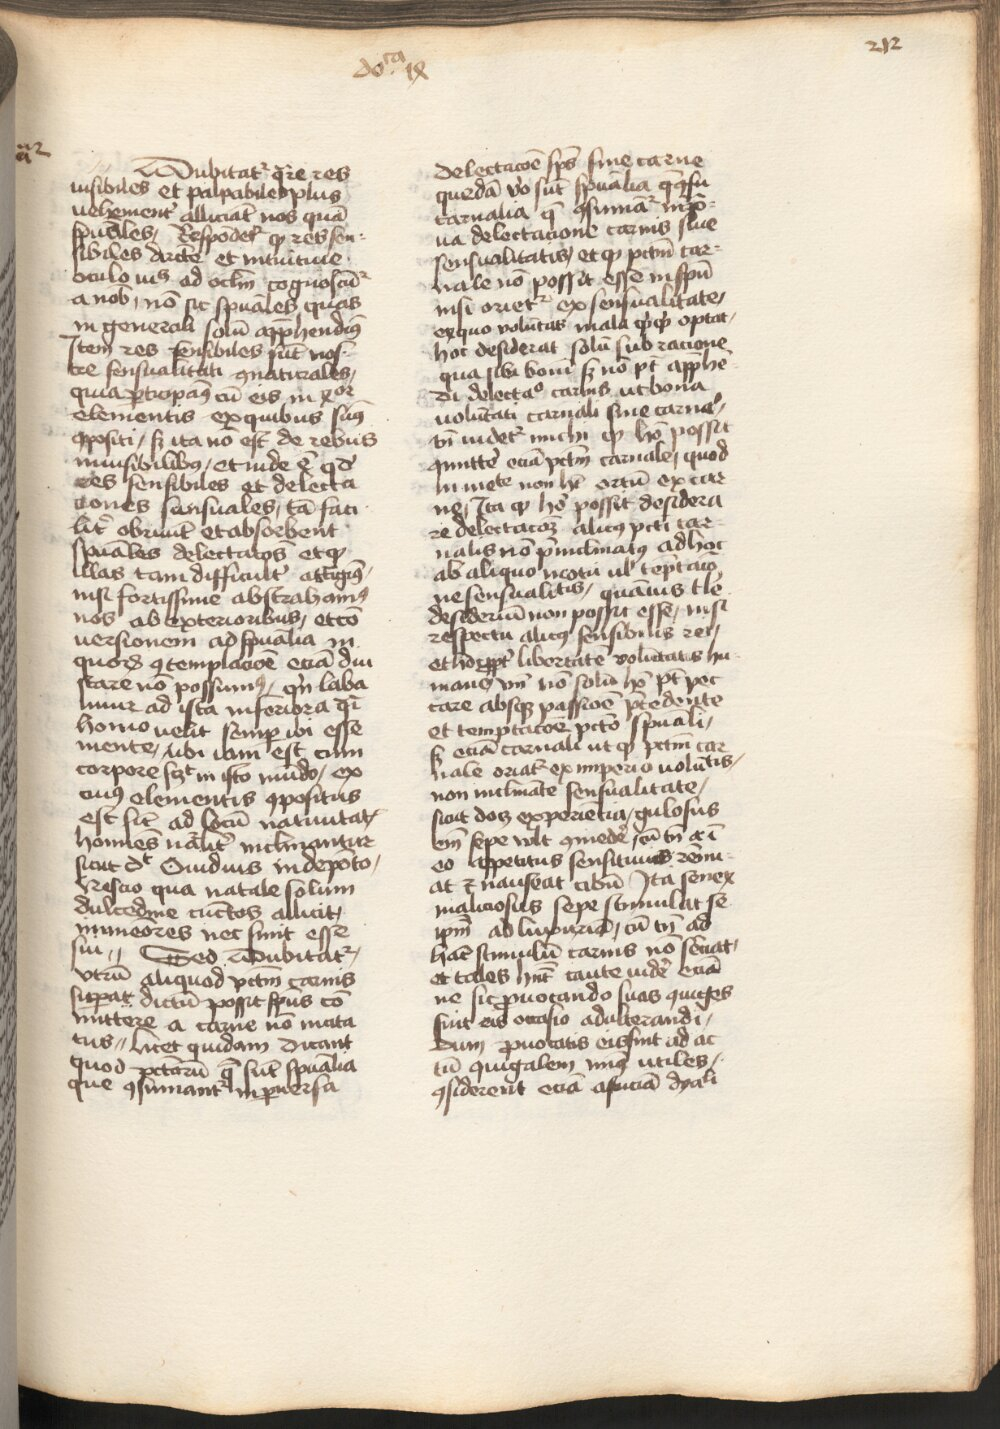 do.ca ix
212
Dubitatr qre res
visibiles et palpabiles plus
vehementr alliciāt nos quā
spūales, Respōdetr qp res sen-
sibiles dirēte et intuitive
oculo
a nob, nō sic spūales quas
in generali solū appħendimꝰ
Item res sensibiles sūt nos-
tre sensualitati ꝯnaturales,
quia
elementis ex quibus sumꝰ
ꝯpositi, sꝫ ita nō est de rebus
invisibilibꝰ, et inde ē qd
res sensibiles et delecta
ciones sensuales, tā faci
litr obruūt et absorbent
spūales delectacōes et qp
illas tam difficultr attīgimꝰ,
nisi fortissime abstrahamꝰ
nos ab exterioribus, et cō
versionem ad spūalia in
quorꝫ ꝯtemplacōe eciā diu
stare nō possumꝰ, qn laba
mur ad ista inferiora qi
homo velit semp ibi esse
mente, ubi iam est cum
corpore scꝫ in isto mūdo, ex
cuiꝰ elementis ꝯpositus
est sicut ad locū nativitatꝭ
homies nāliter inclinantur
sicut dt Ovidius in de pōto,
Nescio qua natale solum
dulcedine cūctos allicit,
inmemores nec sinit esse
sui,, Sed dubitatr,
vtrū aliquod pctm carnis
sicut dictū possit spūs cō
mittere a carne nō inita
tus,, licet quidam dicant
quod pctōrū q̄ sūt spūalia
que ꝯsumantr in pversa
delectacōe spūs sine carne
quedā vo sūt spūalia
carnalia q̄ ꝯsumātr
va delectacione carnis sive
sensualitatis, et qp pctm car-
nale nō possit esse in spū
nisi orietr ex sensualitate,
ex quo volūtas mala optat,
hoc desiderat solū sub racione
qua sibi bonū sꝫ nō pt appħē
di delectao carnis ut bona
volūtati carnali sine carne,
tn videtr michi qp hō possit
ꝯmittē eciā pctm carnale, quod
in mēte non hꝫ ortū ex car
ne, Ita qp hō possit desidera
re delectacōꝫ alicꝰ pcti car-
nalis nō pinclinatꝰ ad hoc
ab aliquo motu ul teptacō
ne sensualitis, quāvis tle
desideriū non possit esse, nisi
respectu alicꝰ sensibilis rei,
et hoc ppt libertatē volūtatis hu-
mane, vn nō solū hō pt pec
care absqꝫ passiōe pcedente
et temptacōe pctō spūali,
sꝫ eciā carnali ut qp pctm car
nale oriatr ex imperio volūtis,
non inclināte sensualitate,
sicut docꝫ experiētia, gulosus
em sepe vult ꝯmedē, cū tn
eo appetitus sensitivus renu-
at et nauseat cibū, Ita senex
maliciosus sepe stimulat se
ipm ad luxuriā, cū tn ad
hāc stimulū carnis nō sēciat,
et tales hnt caute videre eciā
ne sic pvocando suas
sint eis occasio adulterandi,
dum pvocatis eis sint ad ac
tū quigalem utiles,
ꝯsiderent eciā astuciā dyali